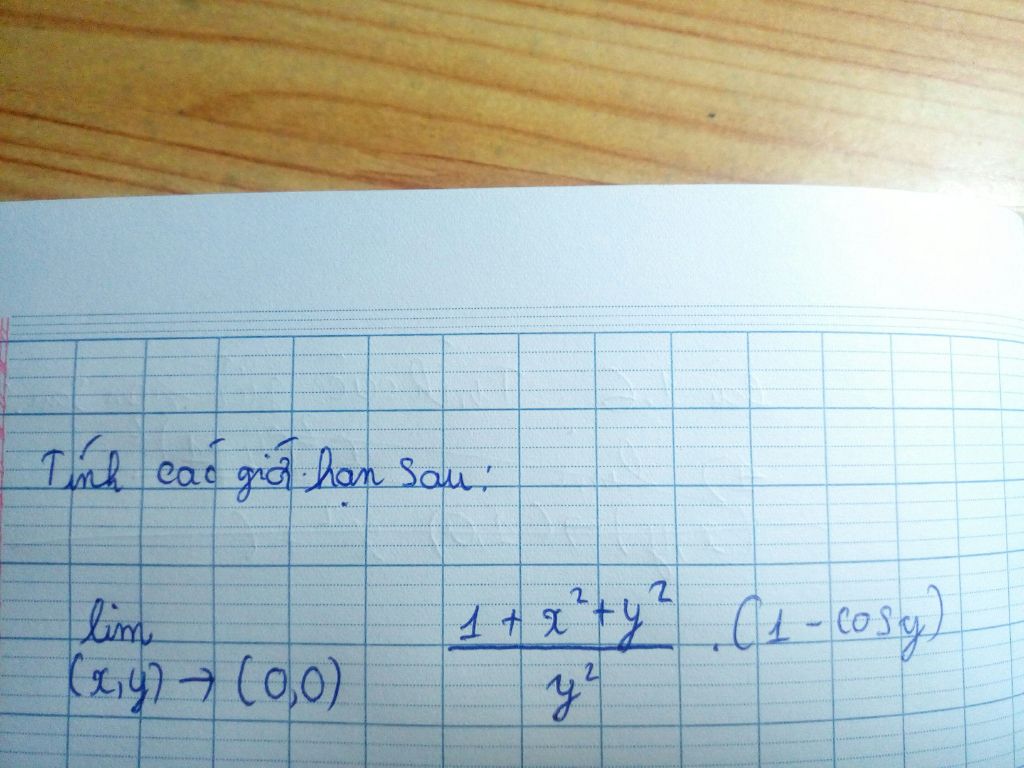 Tính các giới hạn sau:
lim (x,y) → (0,0) (1 + x² + y²)/y² . (1 - cosy)